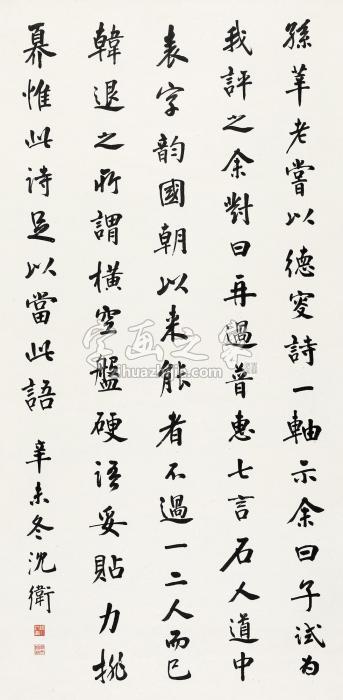 孫莘老嘗以德叟詩一軸示余曰子試为
我評之余對曰再過普惠七言石人道中
表字韵國朝以来能者不過一二人而已
韓退之所謂橫空盤硬語妥貼力排
奡惟此詩足以當此語 辛未冬沈衛
字画之家